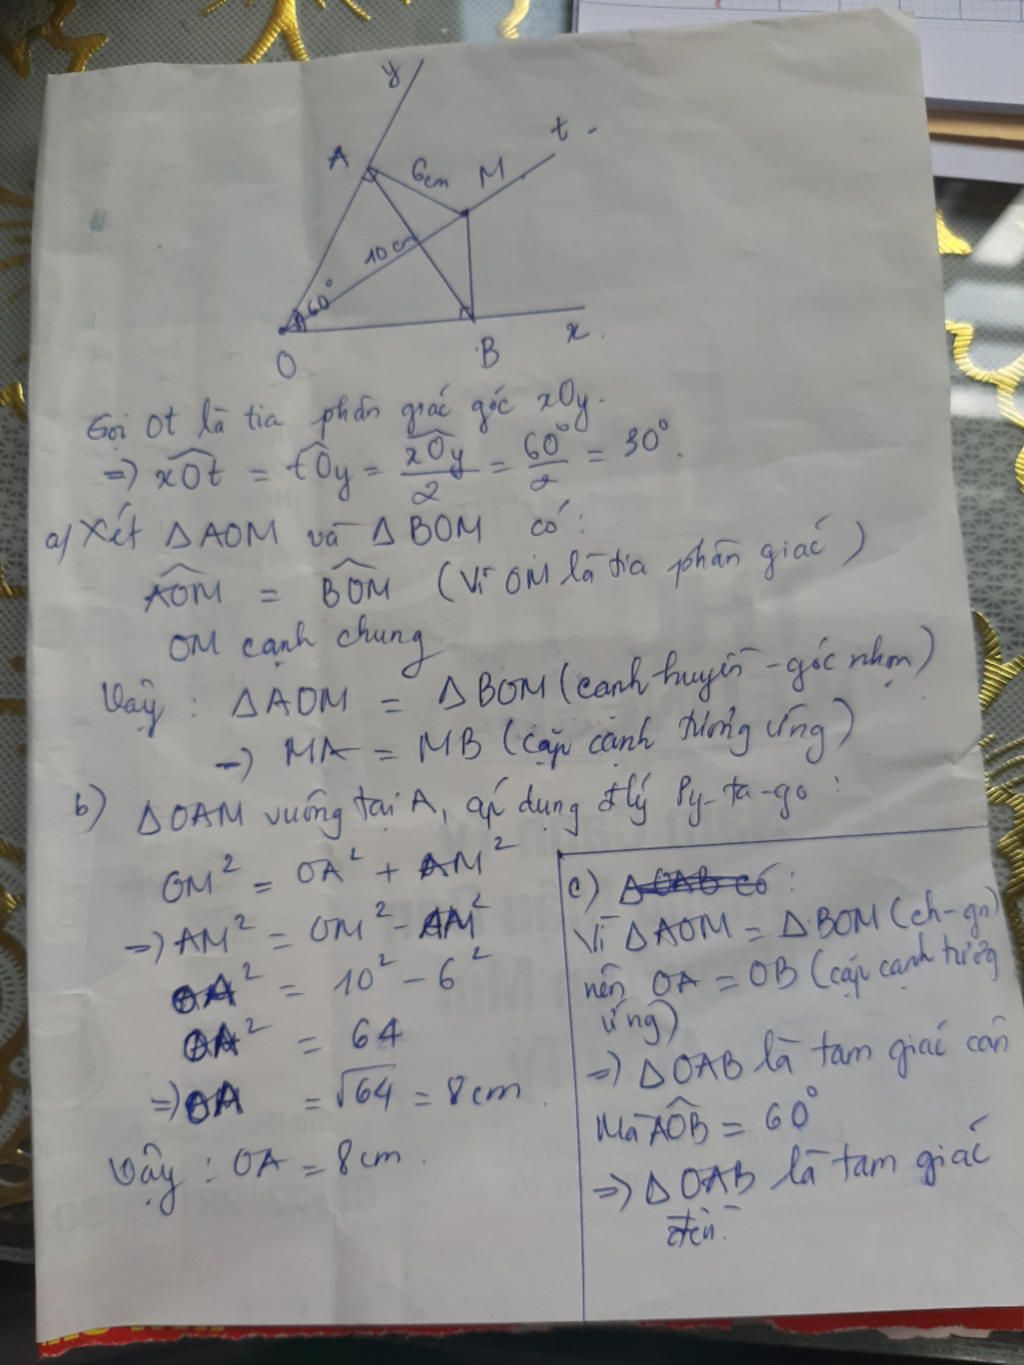 y
t
A
6cm
M
10cm
60°
O
B
x
Gọi Ot là tia phân giác góc xOy.
=> xOt = tOy = xOy/2 = 60°/2 = 30°.
a) Xét ΔAOM và ΔBOM có:
AOM = BOM (Vì OM là tia phân giác)
OM cạnh chung
Vậy : ΔAOM = ΔBOM (cạnh huyền - góc nhọn)
=> MA = MB (cặp cạnh tương ứng)
b) ΔOAM vuông tại A, áp dụng đlý Py-ta-go :
OM² = OA² + AM²
=> AM² = OM² - AM²
OA² = 10² - 6²
OA² = 64
=> OA = √64 = 8cm.
Vậy : OA = 8cm.
c) ΔOAB có :
Vì ΔAOM = ΔBOM (ch-gn)
nên OA = OB (cặp cạnh tương
ứng)
=> ΔOAB là tam giác cân
Mà AOB = 60°
=> ΔOAB là tam giác
đều.